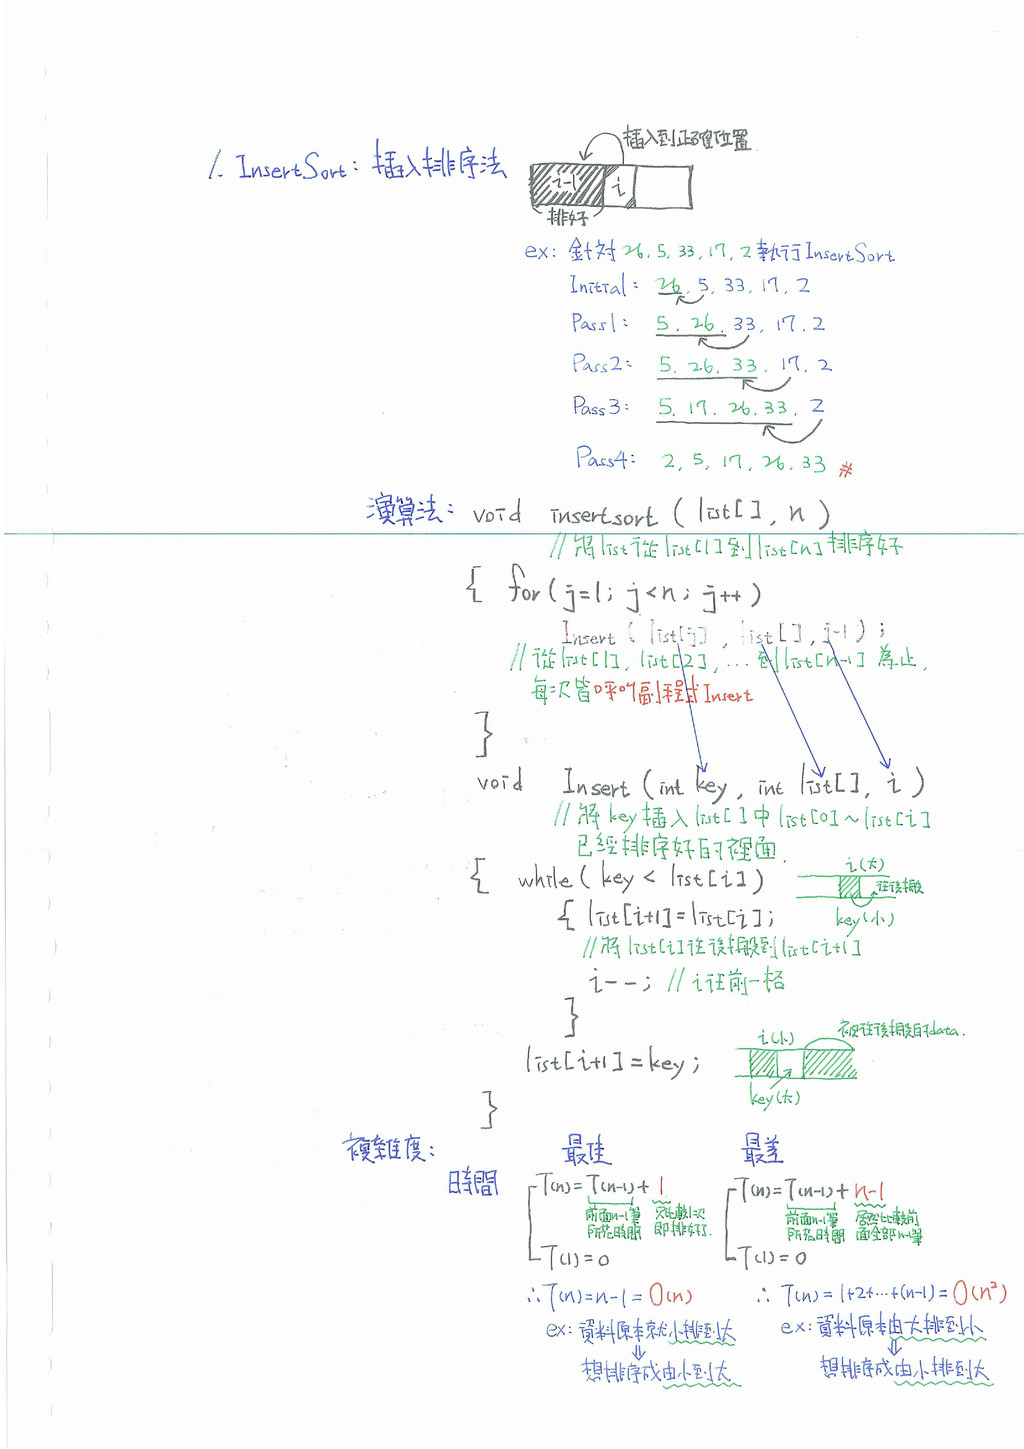 插入到正確位置
1. InsertSort: 插入排序法
i-1 i
排好
ex: 針對 26, 5, 33, 17, 2 執行 InsertSort
Initial: 26, 5, 33, 17, 2
Pass1: 5, 26, 33, 17, 2
Pass2: 5, 26, 33, 17, 2
Pass3: 5, 17, 26, 33, 2
Pass4: 2, 5, 17, 26, 33 #
演算法: void insertsort (list[], n)
//將list從list[1]到list[n]排序好
{ for(j=1; j<n; j++)
Insert (list[j], list[], j-1);
//從list[1], list[2], ... 到list[n-1]為止,
每次皆呼叫副程式Insert
}
void Insert (int key, int list[], i)
//將key插入list[]中list[0]~list[i]
已經排序好的裡面.
{ while( key < list[i])
i(大)
往後搬
{ list[i+1]=list[i];
key(小)
//將list[i]往後搬到list[i+1]
i--; //i往前一格
}
i(小) 被往後搬的data.
list[i+1]=key;
key(大)
}
複雜度: 最佳 最差
時間
T(n)=T(n-1)+1 T(n)=T(n-1)+n-1
前面n-1筆 只比較1次 前面n-1筆 居然比較前
所花時間 即排好了. 所花時間 面全部n-1筆
T(1)=0 T(1)=0
∴T(n)=n-1=O(n) ∴ T(n)=1+2+...+(n-1)=O(n²)
ex: 資料原本就小排到大 ex: 資料原本由大排到小
⇓ ⇓
想排序成由小到大 想排序成由小排到大